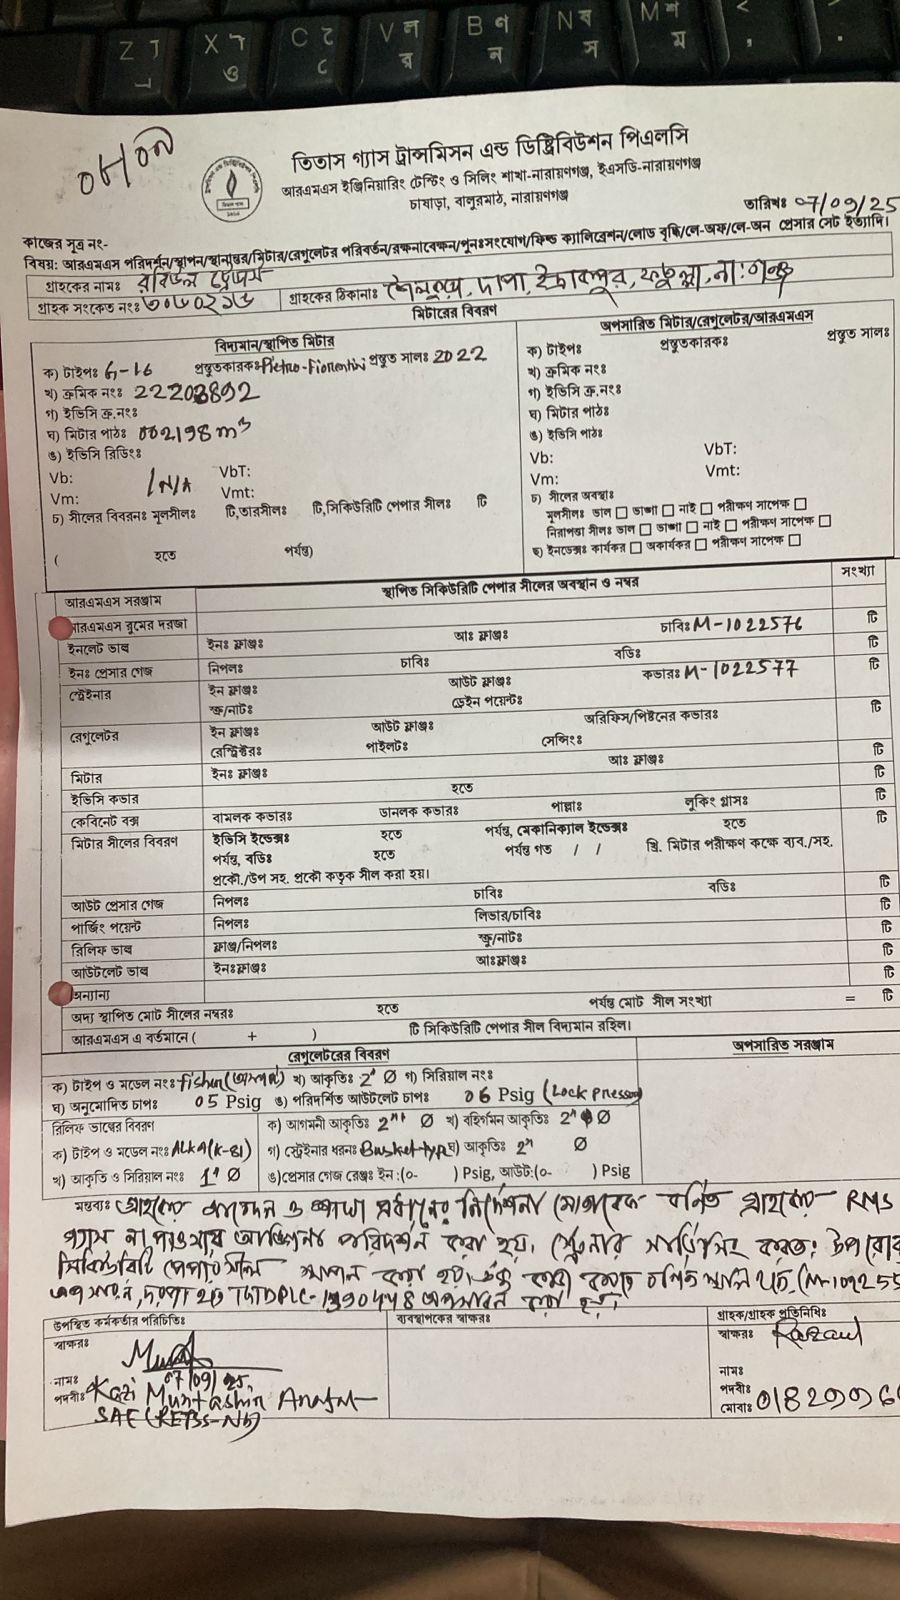 ০৮/০৯
তিতাস গ্যাস ট্রান্সমিসন এন্ড ডিষ্ট্রিবিউশন পিএলসি
আরএমএস ইঞ্জিনিয়ারিং টেস্টিং ও সিলিং শাখা-নারায়ণগঞ্জ, ইএসডি-নারায়ণগঞ্জ
চাষাড়া, বালুরমাঠ, নারায়ণগঞ্জ
তারিখঃ ০৭/09/25
কাজের সূত্র নং-
বিষয়: আরএমএস পরিদর্শন/স্থাপন/স্থানান্তর/মিটার/রেগুলেটর পরিবর্তন/রক্ষনাবেক্ষন/পুনঃসংযোগ/ফিল্ড ক্যালিব্রেশন/লোড বৃদ্ধি/লে-অফ/লে-অন প্রেসার সেট ইত্যাদি।
গ্রাহকের নামঃ রবিউল ট্রেডার্স
গ্রাহক সংকেত নংঃ গ্রাহকের ঠিকানাঃ দাপা, ইদ্রাকপুর, ফতুল্লা, না:গঞ্জ
মিটারের বিবরণ
বিদ্যমান/স্থাপিত মিটার
ক) টাইপঃ G-16 প্রস্তুতকারকঃ Pietro-Fiorentini প্রস্তুত সালঃ 2022
খ) ক্রমিক নংঃ 22203892
গ) ইভিসি ক্র.নংঃ
ঘ) মিটার পাঠঃ 002198 m³
ঙ) ইভিসি রিডিংঃ
Vb: VbT:
N/A
Vm: Vmt:
চ) সীলের বিবরনঃ মূলসীলঃ টি,তারসীলঃ টি,সিকিউরিটি পেপার সীলঃ টি
( হতে পর্যন্ত)
অপসারিত মিটার/রেগুলেটর/আরএমএস
ক) টাইপঃ প্রস্তুতকারকঃ প্রস্তুত সালঃ
খ) ক্রমিক নংঃ
গ) ইভিসি ক্র.নংঃ
ঘ) মিটার পাঠঃ
ঙ) ইভিসি পাঠঃ
Vb: VbT:
Vm: Vmt:
চ) সীলের অবস্থাঃ
মূলসীলঃ ভাল ভাঙ্গা নাই পরীক্ষণ সাপেক্ষ
নিরাপত্তা সীলঃ ভাল ভাঙ্গা নাই পরীক্ষণ সাপেক্ষ
ছ) ইনডেক্সঃ কার্যকর অকার্যকর পরীক্ষণ সাপেক্ষ
আরএমএস সরঞ্জাম স্থাপিত সিকিউরিটি পেপার সীলের অবস্থান ও নম্বর সংখ্যা
আরএমএস রুমের দরজা
ইনলেট ভাল্ব ইনঃ ফ্লাঞ্জঃ আঃ ফ্লাঞ্জঃ চাবিঃ M-1022576 টি
ইনঃ প্রেসার গেজ নিপলঃ চাবিঃ বডিঃ টি
স্ট্রেইনার ইন ফ্লাঞ্জঃ আউট ফ্লাঞ্জঃ কভারঃ M-1022577 টি
স্ক্রু/নাটঃ ড্রেইন পয়েন্টঃ
রেগুলেটর ইন ফ্লাঞ্জঃ আউট ফ্লাঞ্জঃ অরিফিস/পিষ্টনের কভারঃ টি
রেস্ট্রিক্টরঃ পাইলটঃ সেন্সিংঃ
মিটার ইনঃ ফ্লাঞ্জঃ আঃ ফ্লাঞ্জঃ টি
ইভিসি কভার হতে টি
কেবিনেট বক্স বামলক কভারঃ ডানলক কভারঃ পাল্লাঃ লুকিং গ্লাসঃ টি
মিটার সীলের বিবরণ ইভিসি ইন্ডেক্সঃ হতে পর্যন্ত, মেকানিক্যাল ইন্ডেক্সঃ হতে টি
পর্যন্ত, বডিঃ হতে পর্যন্ত গত / / খ্রি. মিটার পরীক্ষণ কক্ষে ব্যব./সহ.
প্রকৌ./উপ সহ. প্রকৌ কতৃক সীল করা হয়।
আউট প্রেসার গেজ নিপলঃ চাবিঃ বডিঃ টি
পার্জিং পয়েন্ট নিপলঃ লিভার/চাবিঃ টি
রিলিফ ভাল্ব ফ্লাঞ্জ/নিপলঃ স্ক্রু/নাটঃ টি
আউটলেট ভাল্ব ইনঃফ্লাঞ্জঃ আঃফ্লাঞ্জঃ টি
অন্যান্য টি
অদ্য স্থাপিত মোট সীলের নম্বরঃ হতে পর্যন্ত মোট সীল সংখ্যা = টি
আরএমএস এ বর্তমানে ( + ) টি সিকিউরিটি পেপার সীল বিদ্যমান রহিল।
রেগুলেটরের বিবরণ অপসারিত সরঞ্জাম
ক) টাইপ ও মডেল নংঃ Fisher খ) আকৃতিঃ 2" Ø গ) সিরিয়াল নংঃ
ঘ) অনুমোদিত চাপঃ 05 Psig ঙ) পরিদর্শিত আউটলেট চাপঃ 06 Psig (Lock Pressure)
রিলিফ ভাল্বের বিবরণ ক) আগমনী আকৃতিঃ 2" Ø খ) বহির্গমন আকৃতিঃ 2" Ø
ক) টাইপ ও মডেল নংঃ গ) স্ট্রেইনার ধরনঃ Basket type ঘ) আকৃতিঃ 2" Ø
খ) আকৃতি ও সিরিয়াল নংঃ 1" Ø ঙ)প্রেসার গেজ রেঞ্জঃ ইন :(০- ) Psig, আউট:(০- ) Psig
মন্তব্যঃ গ্রাহকের আবেদন ও শাখা প্রধানের নির্দেশনা মোতাবেক বর্ণিত গ্রাহকের RMS
গ্যাস না পাওয়ায় আঙ্গিনা পরিদর্শন করা হয়। স্ট্রেনার সার্ভিসিং করত:
সিকিউরিটি পেপার সীল স্থাপন করা হয়।
অপসারন করা হয়।
উপস্থিত কর্মকর্তার পরিচিতিঃ ব্যবস্থাপকের স্বাক্ষরঃ গ্রাহক/গ্রাহক প্রতিনিধিঃ
স্বাক্ষরঃ স্বাক্ষরঃ
07/09/25
নামঃ Kazi নামঃ
পদবীঃ পদবীঃ
মোবাঃ